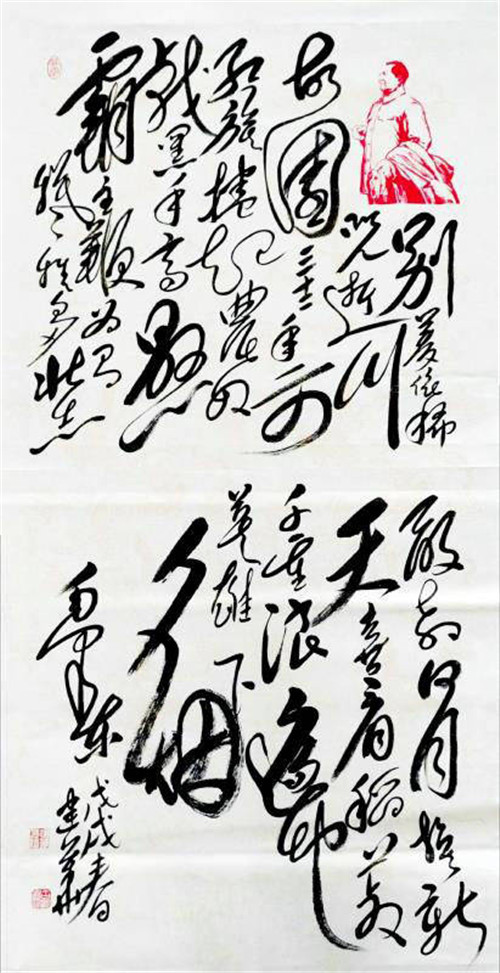 别夢依稀
咒逝川
故園三十二年前
红旗捲起農奴
戟黑手高悬
霸主鞭为有
犠牲多壮志
敢教日月换新
天喜看稻菽
千重浪遍地
英雄下
夕烟
戊戌春
建華